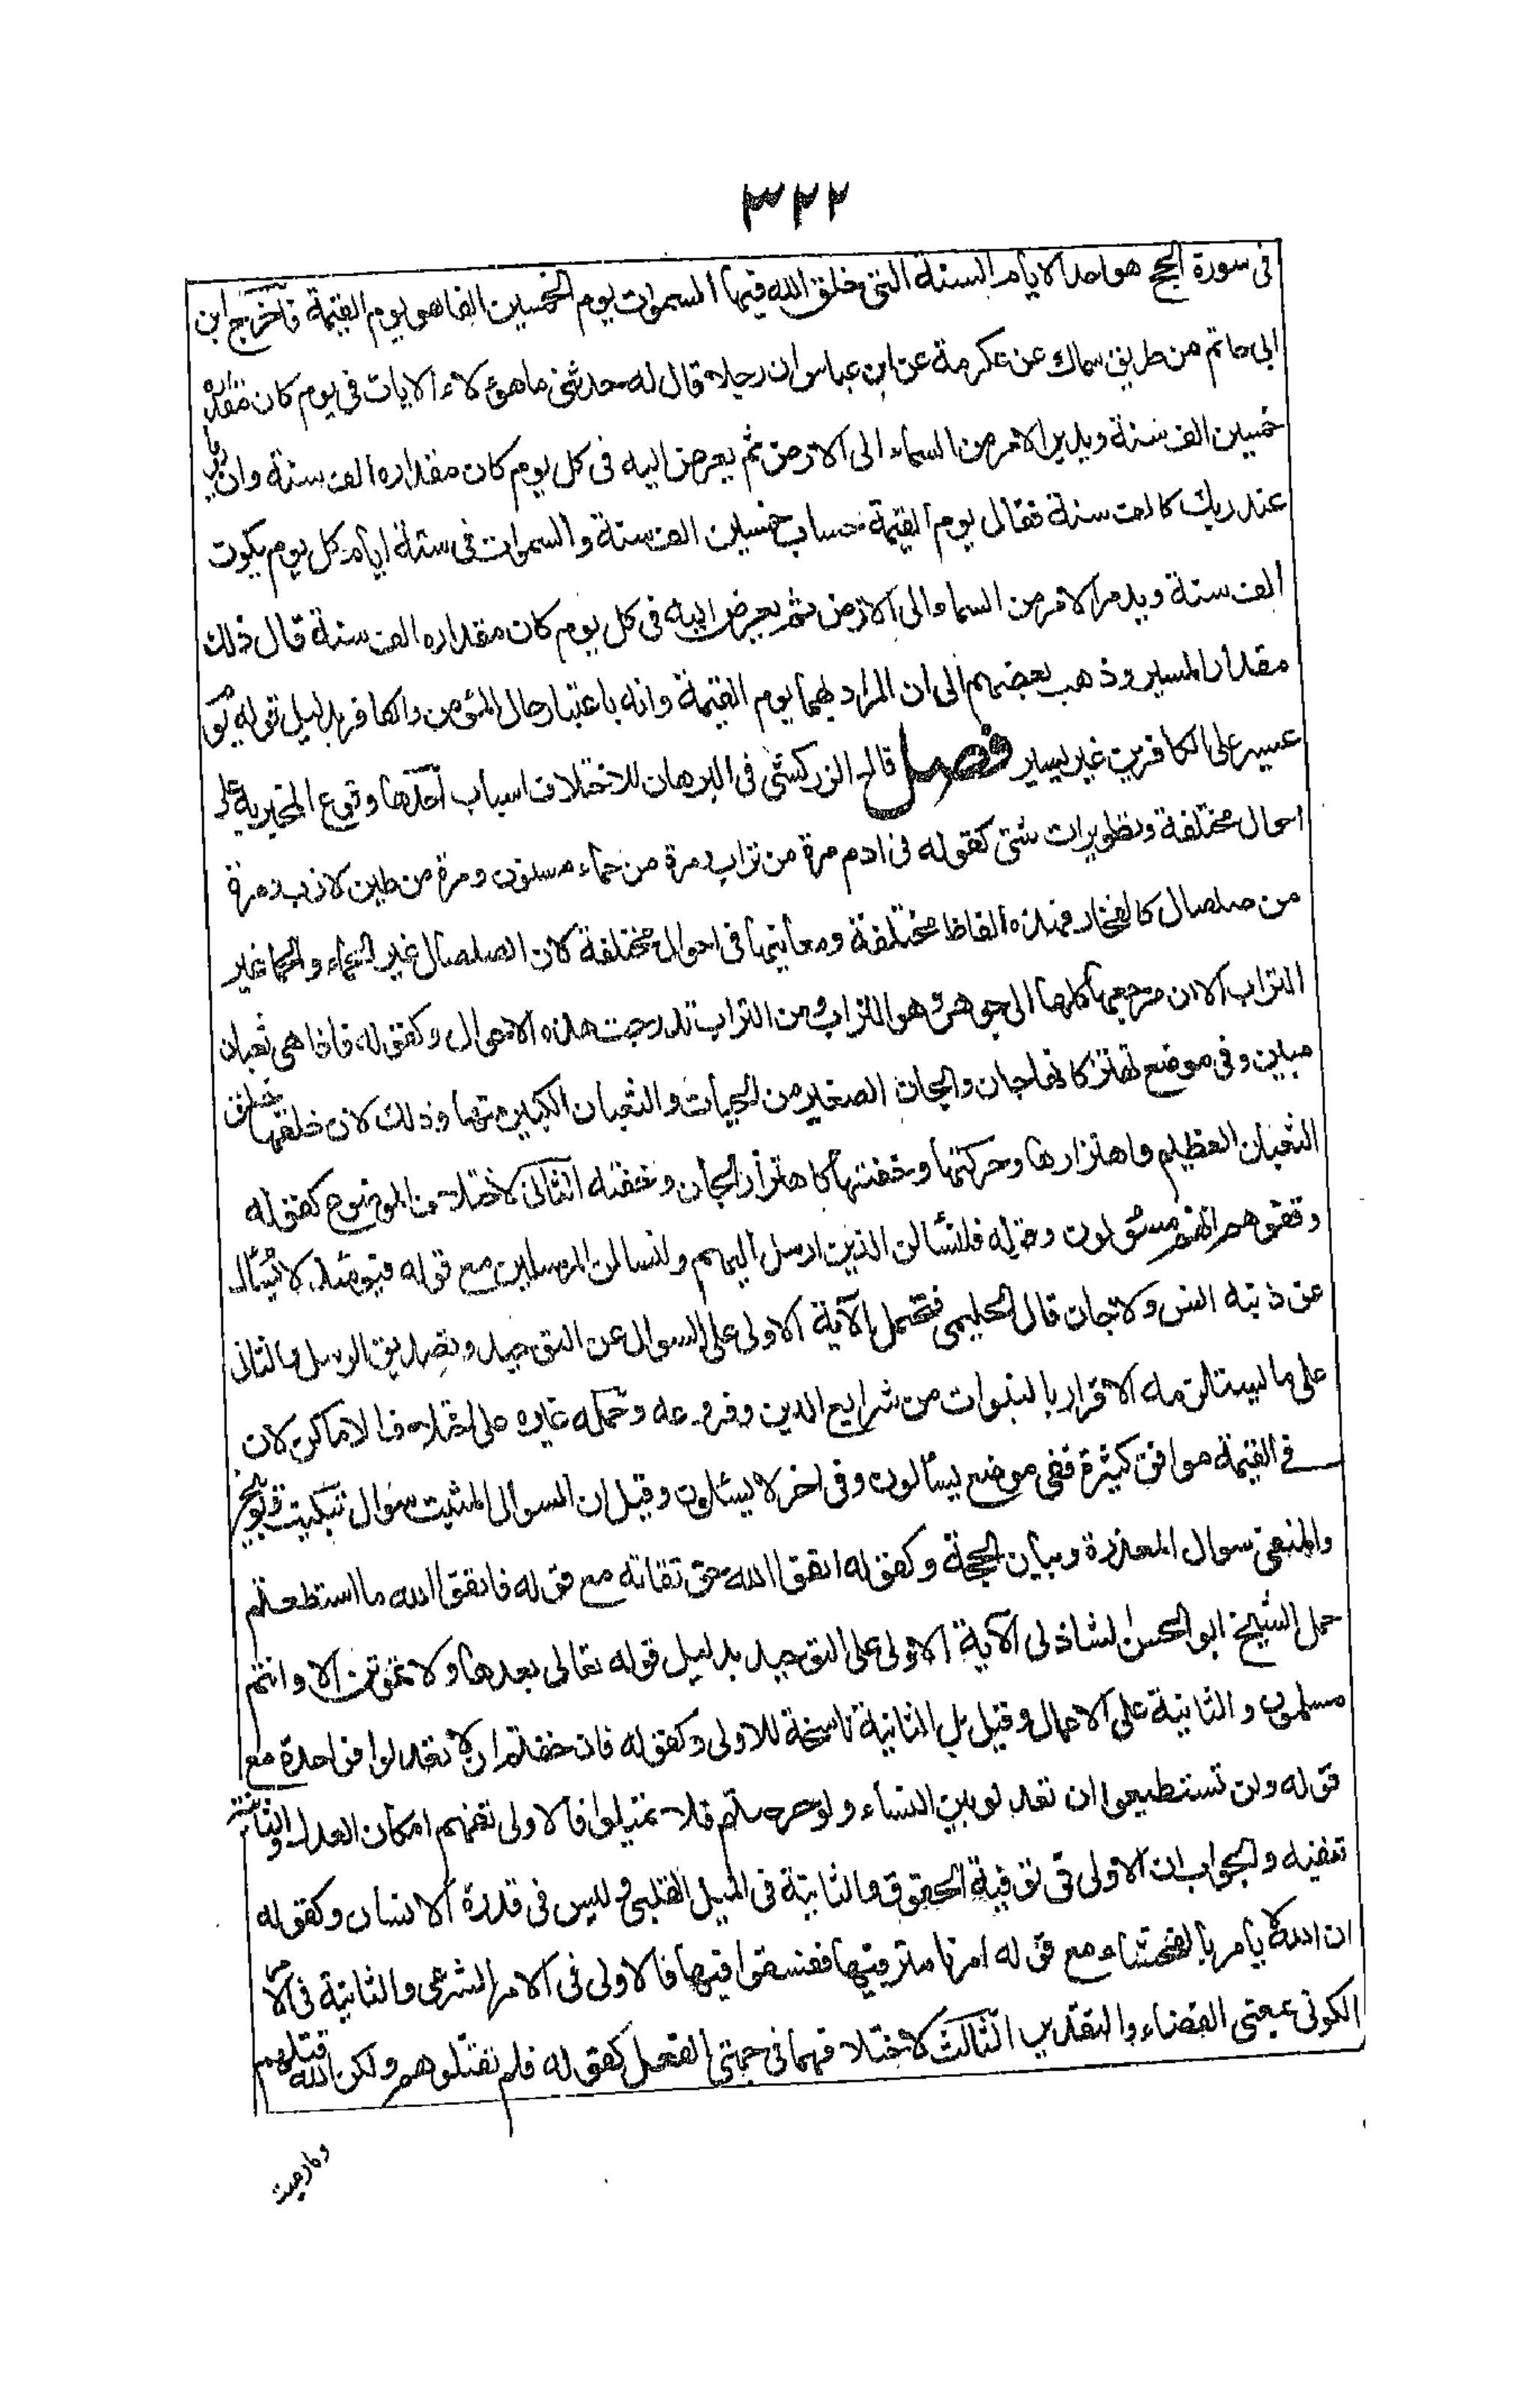 ٣٢٢
فى سورة الحج هو احد الايام الستة التى خلق الله فيها السموات ويوم الخمسين الفا هو يوم القيمة فاخرج ابن
ابى حاتم من طريق سماك عن عكرمة عن ابن عباس ان رجلا قال له حدثنى ما هؤلاء الايات فى يوم كان مقداره
خمسين الف سنة ويدبر الامر من السماء الى الارض ثم يعرض اليه فى كل يوم كان مقداره الف سنة وان يوما
عند ربك كالف سنة فقال يوم القيمة حساب خمسين الف سنة والسموات فى ستة ايام كل يوم يكون
الف سنة ويدبر الامر من السماء الى الارض ثم يعرض اليه فى كل يوم كان مقداره الف سنة قال ذلك
مقدار المسير وذهب بعضهم الى ان المراد بهما يوم القيمة وانه باعتبار حال المؤمن والكافر بدليل قوله يوم
عسير على الكافرين غير يسير فصل قال الزركشى فى البرهان للاختلاف اسباب احدها وقوع المخبر به على
احوال مختلفة وتطويرات شتى كقوله فى ادم مرة من تراب ومرة من حماء مسنون ومرة من طين لازب ومرة
من صلصال كالفخار فهذه الفاظ مختلفة ومعانيها فى احوال مختلفة لان الصلصال غير الحماء والحما غير
التراب الا ان مرجعها كلها الى جوهر وهو التراب ومن التراب تدرجت هذه الاحوال وكقوله فاذا هى ثعبان
مبين وفى موضع تهتز كانها جان والجان الصغير من الحيات والثعبان الكبير منها وذلك لان خلقها خلق
الثعبان العظيم واهتزازها وحركتها وخفتها كاهتزاز الجان وخفته الثانى لاختلاف الموضوع كقوله
وقفوهم انهم مسئولون وقوله فلنسألن الذين ارسل اليهم ولنسألن المرسلين مع قوله فيومئذ لا يسأل
عن ذنبه انس ولا جان قال الحليمى فتحمل الآية الاولى على السوال عن التوحيد وتصديق الرسل والثانى
على ما يستلزمه الاقرار بالنبوات من شرايع الدين وفروعه وحمله غيره على اختلاف الاماكن لان
فى القيمة مواقف كثيرة ففى موضع يسألون وفى اخر لا يسئلون وقيل ان السوال المثبت سوال تبكيت وتوبيخ
والمنفى سوال المعذرة وبيان الحجة وكقوله اتقوا الله حق تقاته مع قوله فاتقوا الله ما استطعتم
حمل الشيخ ابو الحسن الشاذلى الآية الاولى على التوحيد بدليل قوله تعالى بعدها ولا تموتن الا وانتم
مسلمون والثانية على الاعمال وقيل بل الثانية ناسخة للاولى وكقوله فان خفتم ان لا تعدلوا فواحدة مع
قوله ولن تستطيعوا ان تعدلو بين النساء ولو حرصتم فلا تميلوا فالاولى تفهم امكان العدل والثانية
تنفيه والجواب ان الاولى فى توفية الحقوق والثانية فى الميل القلبى وليس فى قدرة الانسان وكقوله
ان الله لا يأمر بالفحشاء مع قوله امرنا مترفيها ففسقوا فيها فالاولى فى الامر الشرعى والثانية فى الامر
الكونى بمعنى القضاء والتقدير الثالث لاختلافهما فى جهتى الفعل كقوله فلم تقتلوهم ولكن الله قتلهم
وما رميت